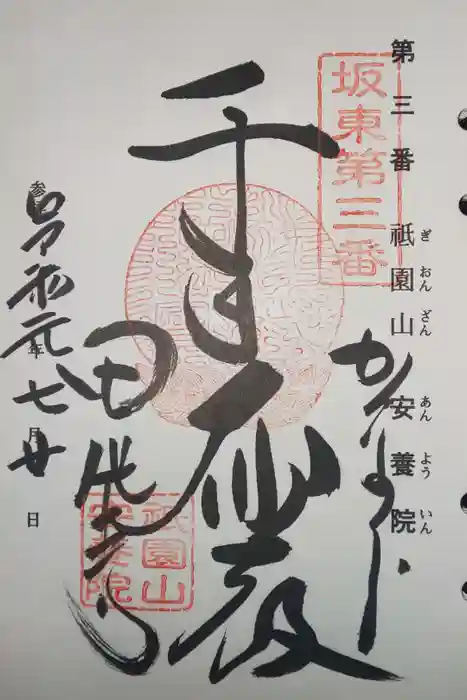 第三番 祇園山 安養院
ぎおんざん あんよういん
坂東第三番
かまくら
千手大悲殿
田代寺
祇園山
安養院
参 令和元年七月廿日